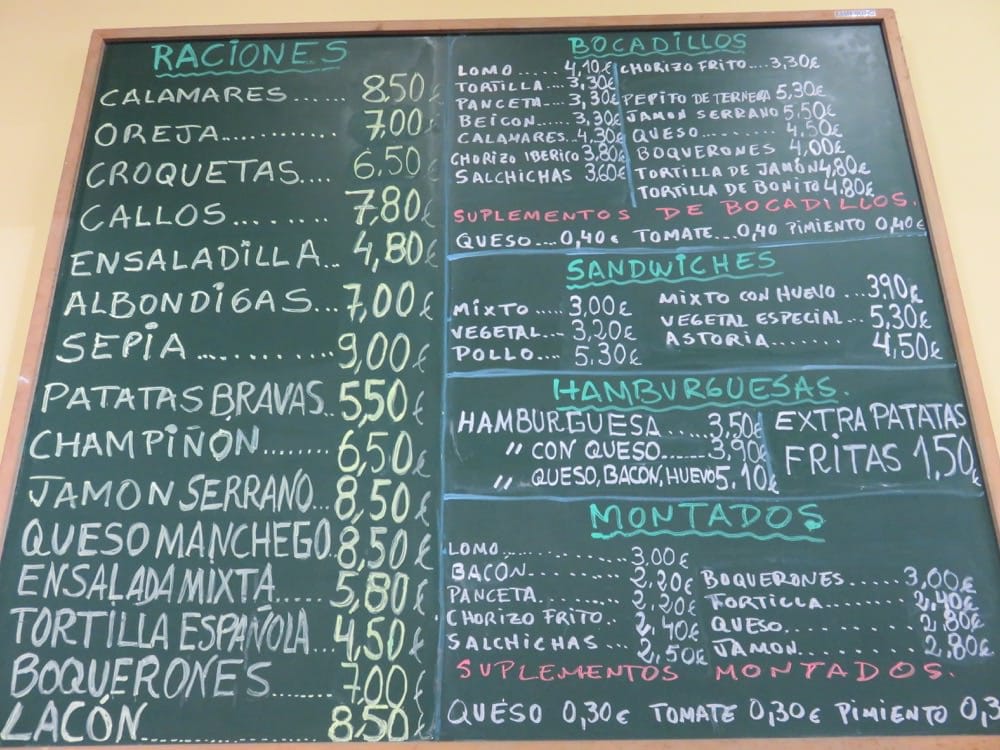 RACIONES
CALAMARES...... 8,50€
OREJA........... 7,00€
CROQUETAS... 6,50€
CALLOS........ 7,80€
ENSALADILLA... 4,80€
ALBONDIGAS... 7,00€
SEPIA........... 9,00€
PATATAS BRAVAS.. 5,50€
CHAMPIÑÓN...... 6,50€
JAMON SERRANO... 8,50€
QUESO MANCHEGO. 8,50€
ENSALADA MIXTA..... 5,80€
TORTILLA ESPAÑOLA 4,50€
BOQUERONES....... 7,00€
LACÓN............ 8,50€
BOCADILLOS
LOMO...... 4,10€
TORTILLA... 3,30€
PANCETA... 3,30€
BEICON... 3,30€
CALAMARES.. 4,30€
CHORIZO IBERICO 3,80€
SALCHICHAS 3,60€
CHORIZO FRITO.... 3,30€
PEPITO DE TERNERA 5,30€
JAMON SERRANO 5,50€
QUESO......... 4,50€
BOQUERONES 4,00€
TORTILLA DE JAMÓN 4,80€
TORTILLA DE BONITO 4,80€
SUPLEMENTOS DE BOCADILLOS.
QUESO.... 0,40€ TOMATE... 0,40 PIMIENTO 0,40€
SANDWICHES
MIXTO... 3,00€
VEGETAL.... 3,20€
POLLO.... 5,30€
MIXTO CON HUEVO... 3,90€
VEGETAL ESPECIAL... 5,30€
ASTORIA....... 4,50€
HAMBURGUESAS.
HAMBURGUESA...... 3,50€
" CON QUESO...... 3,90€
" QUESO, BACÓN, HUEVO 5,10€
EXTRA PATATAS
FRITAS 1,50€
MONTADOS
LOMO............ 3,00€
BACÓN......... 2,20€
PANCETA....... 2,20€
CHORIZO FRITO.. 2,40€
SALCHICHAS... 2,50€
BOQUERONES...... 3,00€
TORTILLA........ 2,40€
QUESO........... 2,80€
JAMON......... 2,80€
SUPLEMENTOS MONTADOS.
QUESO 0,30€ TOMATE 0,30€ PIMIENTO 0,3